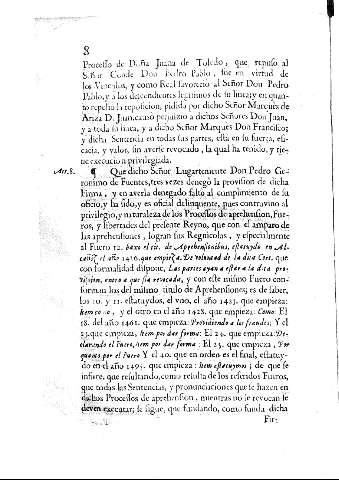 8
Processo de Doña Juana de Toledo, que repuso al
Señor Conde Don Pedro Pablo, fue en virtud de
los Vinculos, y como Real favoreció al Señor Don Pedro
Pablo, y a los descendientes legitimos de su linea; y en quanto
repelio la reposicion, pidida por dicho Señor Marquès de
Ariza D. Juan, causò perjuizio a dichos Señores Don Juan,
y a toda su linea, y a dicho Señor Marquès Don Francisco;
y dicha Sentencia en todas sus partes, està en su fuerça, eficacia,
y valor, sin averse revocado, la qual ha tenido, y tiene
execucion privilegiada.
Art. 8. ¶ Que dicho Señor Lugarteniente Don Pedro Geronimo
de Fuentes, tres vezes denegò la provision de dicha
Firma, y en averla denegado faltò al cumplimiento de su
oficio, y ha sido, y es oficial delinquente, pues contravino al
privilegio, y naturaleza de los Processos de aprehension, Fueros,
y libertades del presente Reyno, que con el amparo de
las aprehensiones, logran sus Regnicolas, y especialmente
al Fuero 12. baxo el tit. de Aprehensionibus, estatuydo en Alcañiz
el año 1436. que empieça: De voluntad de la dica Cort. que
con formalidad dispone, Las partes ayan a estar a la dica provision,
entro a que sia revocada, y con este mismo Fuero conforman
los del mismo titulo de Aprehensiones; es de saber,
los 10. y 11. estatuydos, el vno, el año 1423. que empieza:
Item como, y el otro en el año 1428. que empieza: Como: El
18. del año 1461. que empieza: Providiendo a los fraudes: Y el
23. que empieza, Item por dar forma: El 24. que empieza: Declarando
el Fuero, Item por dar forma: El 25. que empieza, Por
quanto por el Fuero Y el 40. que en orden es el final, estatuydo
en el año 1495. que empieza: Item estatuymos; de que se
infiere, que resultando, como resulta de los referidos Fueros,
que todas las Sentencias, y pronunciaciones que se hazen en
dichos Processos de aprehension, mientras no se revocan se
deven executar; se sigue, que fundando, como funda dicha
Fir-